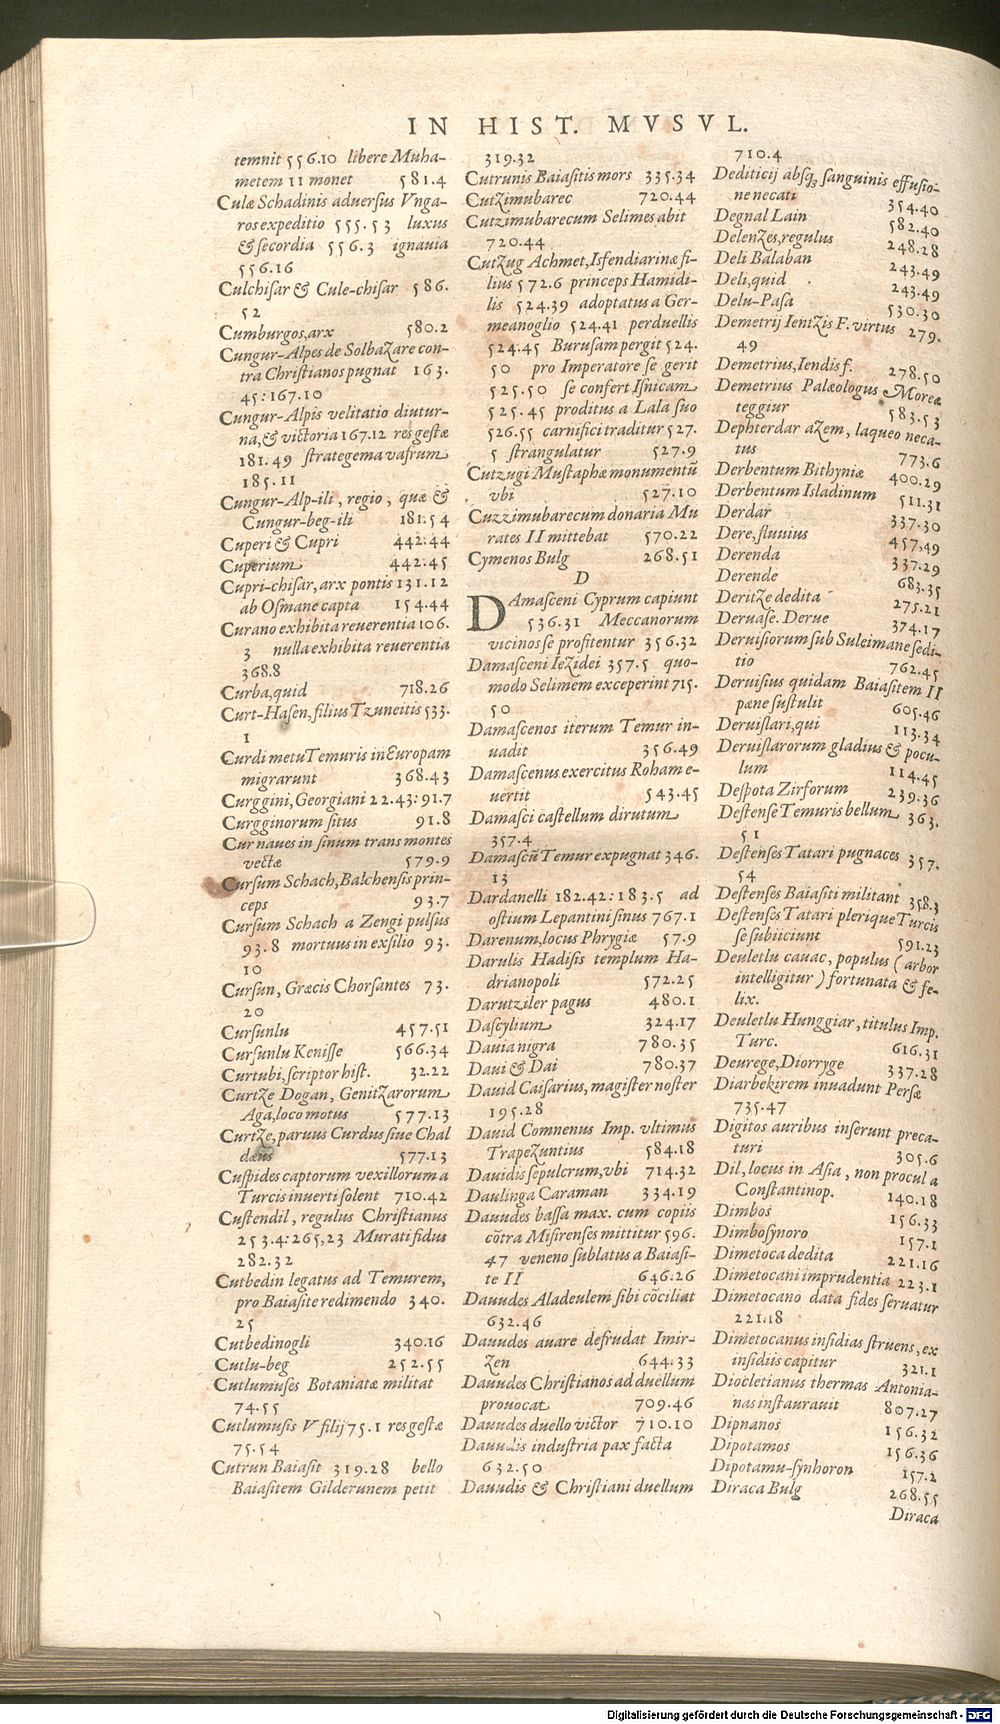 IN HIST. MVSVL.
temnit 556.10 libere Muha-
metem II monet 581.4
Culæ Schadinis adversus Vnga-
ros expeditio 555.53 luxus
& secordia 556.3 ignauia
556.16
Culchisar & Cule-chisar 586.
52
Cumburgos, arx 580.2
Cungur-Alpes de Solbazare con-
tra Christianos pugnat 163.
45:167.10
Cungur-Alpis velitatio diutur-
na, & victoria 167.12 res gestæ
181.49 strategema vafrum
185.11
Cungur-Alp-ili, regio, quæ &
Cungur-beg-ili 181.54
Cuperi & Cupri 442:44
Cuperium 442:45
Cupri-chisar, arx pontis 131.12
ab Osmane capta 154.44
Curano exhibita reuerentia 106.
3 nulla exhibita reuerentia
368.8
Curba, quid 718.26
Curt-Hasen, filius Tzuneitis 533.
1
Curdi metu Temuris in Europam
migrarunt 368.43
Curggini, Georgiani 22.43:91.7
Curgginorum situs 91.8
Cur naues in sinum trans montes
vectæ 579.9
Cursum Schach, Balchensis prin-
ceps 93.7
Cursum Schach a Zengi pulsus
93.8 mortuus in exsilio 93.
10
Cursun, Græcis Chorsantes 73.
20
Cursunlu 457.51
Cursunlu Kenisse 566.34
Curtubi, scriptor hist. 32.22
Curtze Dogan, Genitzarorum
Aga, loco motus 577.13
Curtze, paruus Curdus siue Chal
dæus 577.13
Cuspides captorum vexillorum a
Turcis inuerti solent 710.42
Custendil, regulus Christianus
253.4:265,23 Murati fidus
282.32
Cutbedin legatus ad Temurem,
pro Baiasite redimendo 340.
25
Cutbedinogli 340.16
Cutlu-beg 252.55
Cutlumuses Botaniatæ militat
74.55
Cutlumusis V filij 75.1 res gestæ
75.54
Cutrun Baiasit 319.28 bello
Baiasitem Gilderunem petit
319.32
Cutrunis Baiasitis mors 335.34
Cutzimubarec 720.44
Cutzimubarecum Selimes abit
720.44
Cutzug Achmet, Isfendiarinæ fi-
lius 572.6 princeps Hamidi-
lis 524.39 adoptatus a Ger-
meanoglio 524.41 perduellis
524.45 Burusam pergit 524.
50 pro Imperatore se gerit
525.50 se confert Isnicam
525.45 proditus a Lala suo
526.55 carnifici traditur 527.
5 strangulatur 527.9
Cutzugi Mustaphæ monumentũ
vbi 527.10
Cuzzimubarecum donaria Mu
rates II mittebat 570.22
Cymenos Bulg 268.51
D
DAmasceni Cyprum capiunt
536.31 Meccanorum
vicinos se profitentur 356.32
Damasceni Iezidei 357.5 quo-
modo Selimem exceperint 715.
50
Damascenos iterum Temur in-
uadit 356.49
Damascenus exercitus Roham e-
uertit 543.45
Damasci castellum dirutum
357.4
Damascũ Temur expugnat 346.
13
Dardanelli 182.42:183.5 ad
ostium Lepantini sinus 767.1
Darenum, locus Phrygiæ 57.9
Darulis Hadisis templum Ha-
drianopoli 572.25
Darutziler pagus 480.1
Dascylium 324.17
Dauia nigra 780.35
Daui & Dai 780.37
Dauid Caisarius, magister noster
195.28
Dauid Comnenus Imp. vltimus
Trapezuntius 584.18
Dauidis sepulcrum, vbi 714.32
Daulinga Caraman 334.19
Dauudes bassa max. cum copiis
cõtra Misirenses mittitur 596.
47 veneno sublatus a Baiasi-
te II 646.26
Dauudes Aladeulem sibi cõciliat
632.46
Dauudes auare defrudat Imir-
zen 644.33
Dauudes Christianos ad duellum
prouocat 709.46
Dauudes duello victor 710.10
Dauudis industria pax facta
632.50
Dauudis & Christiani duellum
710.4
Dediticij absq; sanguinis effusio-
ne necati 354.40
Degnal Lain 582.40
Delenzes, regulus 248.28
Deli Balaban 243.49
Deli, quid 243.49
Delu-Pasa 530.30
Demetrij Ientzis F. virtus 279.
49
Demetrius, Iendis f. 278.50
Demetrius Palæologus Moreæ
teggiur 583.53
Dephterdar azem, laqueo neca-
tus 773.6
Derbentum Bithyniæ 400.29
Derbentum Isladinum 511.31
Derdar 337.30
Dere, fluuius 457,49
Derenda 337.29
Derende 683.35
Deritze dedita 275.21
Deruase. Derue 374.17
Deruisiorum sub Suleimane sedi-
tio 762.45
Deruisius quidam Baiasitem II
pæne sustulit 605.46
Deruislari, qui 113.34
Deruislarorum gladius & pocu-
lum 114.45
Despota Zirforum 239.36
Destense Temuris bellum 363.
51
Destenses Tatari pugnaces 357.
54
Destenses Baiasiti militant 358.3
Destenses Tatari plerique Turcis
se subiiciunt 591.23
Deuletlu cauac, populus (arbor
intelligitur) fortunata & fe-
lix.
Deuletlu Hunggiar, titulus Imp.
Turc. 616.31
Deurege, Diorryge 337.28
Diarbekirem inuadunt Persæ
735.47
Digitos auribus inserunt preca-
turi 305.6
Dil, locus in Asia, non procul a
Constantinop. 140.18
Dimbos 156.33
Dimbosynoro 157.1
Dimetoca dedita 221.16
Dimetocani imprudentia 223.1
Dimetocano data fides seruatur
221.18
Dimetocanus insidias struens, ex
insidiis capitur 321.1
Diocletianus thermas Antonia-
nas instaurauit 807.27
Dipnanos 156.32
Dipotamos 156.36
Dipotamu-synhoron 157.2
Diraca Bulg 268.55
Diraca
Digitalisierung gefördert durch die Deutsche Forschungsgemeinschaft - DFG